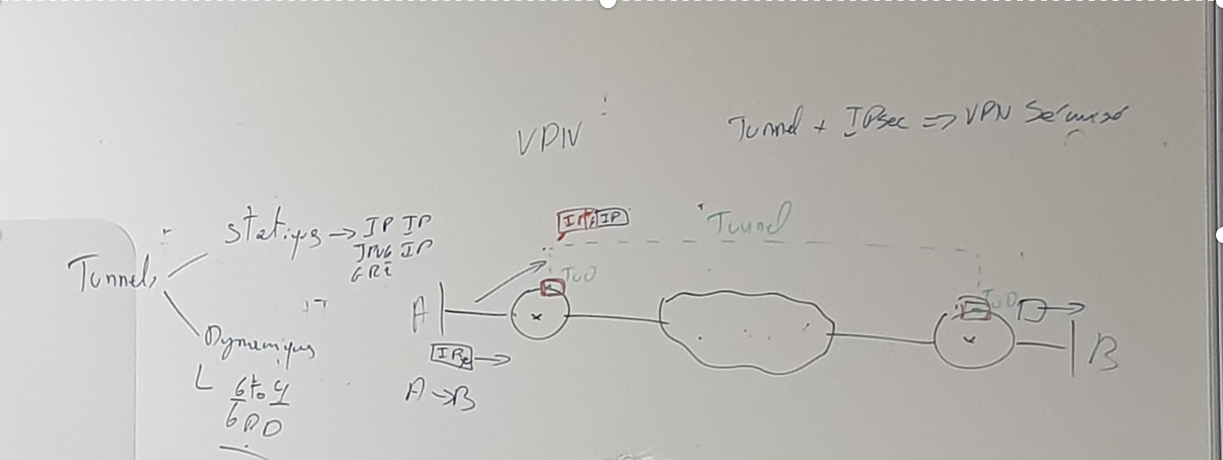 VPN
Tunnel + IPsec => VPN Sécurisé
Tunnels
statiques → IP IP
IPV6 IP
GRE
Dynamiques
6to4
6RD
IP
Tunnel
Tu0
Tu0
A
B
A → B